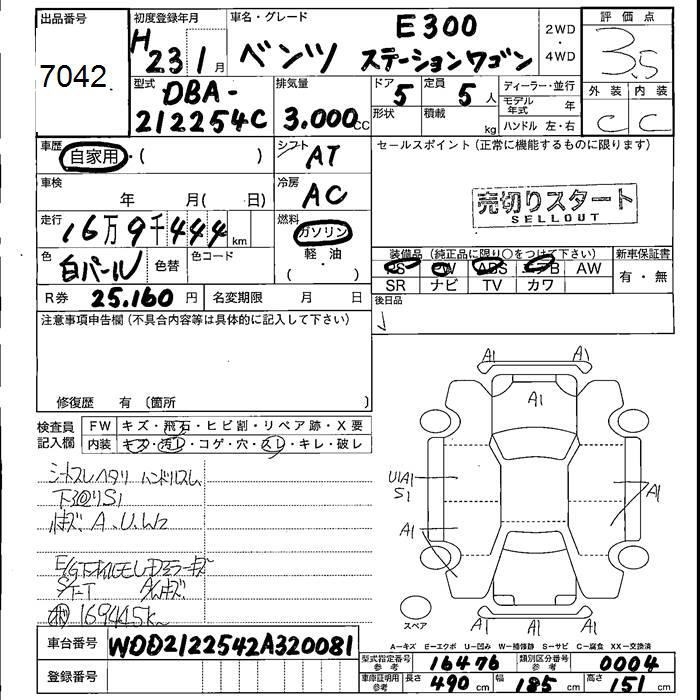 出品番号
7042
初度登録年月
H23 1月
車名・グレード
ベンツ E300 ステーションワゴン
2WD・4WD
評価点
3.5
型式
DBA-212254C
排気量
3.000cc
ドア 5
定員 5人
形状
積載 kg
ディーラー・並行
モデル年式 年
ハンドル 左・右
外装 内装
C C
車歴
自家用・( )
シフト AT
セールスポイント(正常に機能するものに限ります)
車検
年 月( 日)
冷房 AC
売切りスタート
SELLOUT
走行
16万9千444km
燃料
ガソリン
軽・油
色
白パール
色替
色コード
装備品(純正品に限り○をつけて下さい)
PS PW ABS エアB AW
SR ナビ TV カワ
新車保証書
有・無
R券 25.160円
名変期限 月 日
後日品
注意事項申告欄(不具合内容等は具体的に記入して下さい)
修復歴 有(箇所 )
検査員記入欄
FW キズ・飛石・ヒビ割・リペア跡・X要
内装 キズ・汚レ・コゲ・穴・スレ・キレ・破レ
シートスレヘタリ ハンドルスレ
A.U.W2
169445k
A1 A1
A1
U1A1
S1
A1
A1
A1 A1
スペア
A-キズ E-エクボ U-凹み W-補修跡 S-サビ C-腐食 XX-交換済
車台番号 WDD2122542A320081
登録番号
型式指定番号参考 16476
類別区分番号参考 0004
車庫証明用参考 長さ 490cm 幅 185cm 高さ 151cm